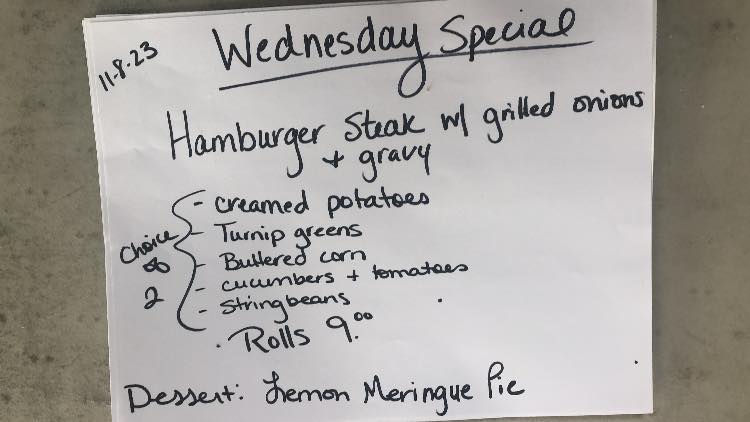 11-8-23
Wednesday Special
Hamburger Steak w/ grilled onions
+ gravy
Choice
of
2
- creamed potatoes
- Turnip greens
- Buttered corn
- cucumbers + tomatoes
- Stringbeans
. Rolls 9.00
Dessert: Lemon Meringue Pie